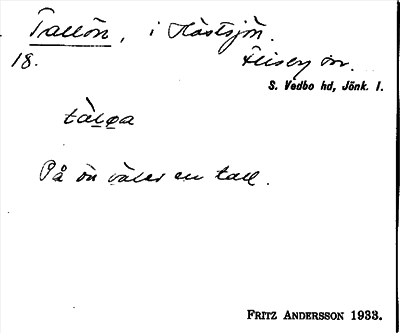 Tallön, i Hästsjön.
18. Flisby sn.
S. Vedbo hd, Jönk. l.
På ön växer en tall.
FRITZ ANDERSSON 1933.